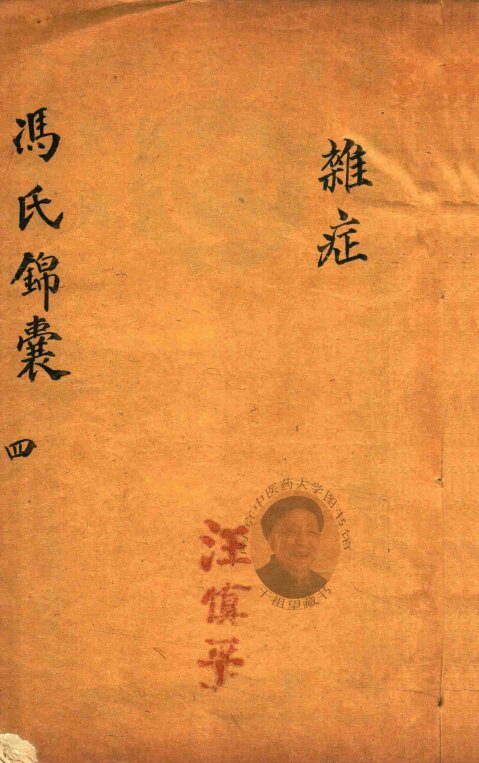 雜症
馮氏錦囊 四
汪慎平
南京中医药大学图书馆
干祖望藏书